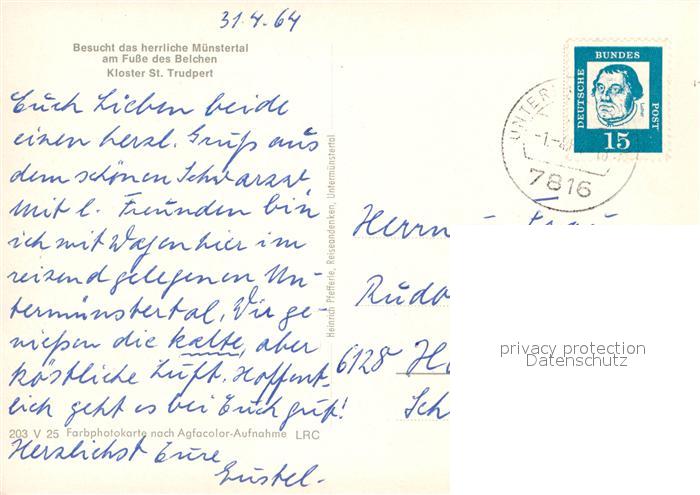 31.4.64
Besucht das herrliche Münstertal
am Fuße des Belchen
Kloster St. Trudpert
Euch Lieben beide
einen herzl. Gruß aus
dem schönen Schwarzw
Mit l. Freunden bin
ich mit Wagen hier im
reizend gelegenen Un-
termünstertal. Wir ge-
nießen die kalte, aber
köstliche Luft. Hoffent-
lich geht es bei Euch gut!
203 V 25 Farbphotokarte nach Agfacolor-Aufnahme LRC
Herzlichst Eure
Gustel.
Heinrich Pfefferle, Reiseandenken, Untermünstertal
DEUTSCHE BUNDES POST
Luther
15
UNTER
-1.-4.
7816
Herrn u. Frau
Rudo
6128 H
Sch
privacy protection
Datenschutz